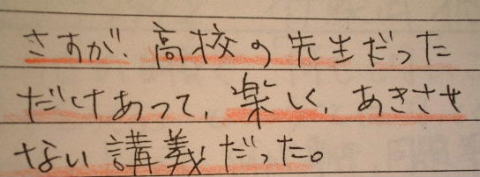 さすが、高校の先生だった
だけあって、楽しく、あきさせ
ない講義だった。